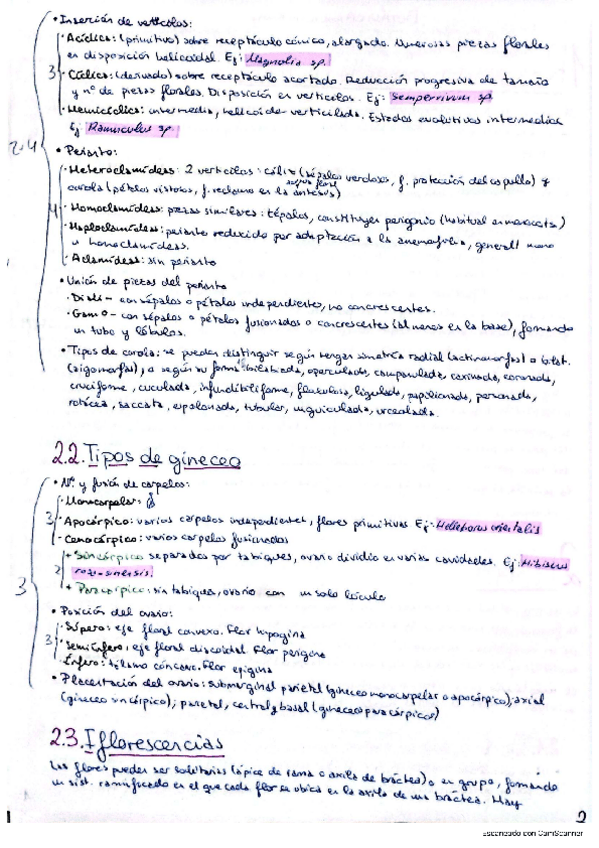 • Inserción de verticilos:
• Acíclica: (primitivo) sobre receptáculo cónico, alargado. Numerosas piezas florales
en disposición helicoidal. Ej: Magnolia sp.
3 • Cíclica: (derivado) sobre receptáculo acortado. Reducción progresiva de tamaño
y nº de piezas florales. Disposición en verticilos. Ej: Sempervivum sp
• Hemicíclica: intermedia, helicoide-verticilada. Estados evolutivos intermedios
Ej: Ranunculus sp.
2.4
• Perianto:
• Heteroclamídeas: 2 verticilos: cáliz (sépalos verdosos, f. protección del capullo) y
corola (pétalos vistosos, f. reclamo en la antesis)
4 • Homoclamídeas: piezas similares: tépalos, constituyen perigonio (habitual en monocots.)
• Haploclamídeas: perianto reducido por adaptación a la anemofilia, generalt mono
u homoclamídeas.
• Aclamídeas: sin perianto
• Unión de piezas del perianto
• Diali- con sépalos o pétalos independientes, no concrescentes.
• Gamo- con sépalos o pétalos fusionados o concrescentes (al menos en la base), formando
un tubo y lóbulos.
• Tipos de corola: se pueden distinguir según tengan simetría radial (actinomorfas) o bilat.
(zigomorfas), o según su forma: bilabiada, operculada, campanulada, carinada, coronada,
cruciforme, cuculada, infundibiliforme, flexulosa, ligulada, papilionada, personada,
rotácea, saccata, espolonada, tubular, unguiculada, urceolada.
2.2. Tipos de gineceo
• Nº. y fusión de carpelos:
• Monocarpelar:
3 • Apocárpico: varios carpelos independientes, flores primitivas Ej: Helleborus orientalis
• Cenocárpico: varios carpelos fusionados
+ Sincárpico separados por tabiques, ovario dividido en varias cavidades. Ej: Hibiscus
2 rosa-sinensis.
+ Paracárpico: sin tabiques, ovario con un solo lóculo
3
• Posición del ovario:
• Súpero: eje floral convexo. Flor hipogina
3 • Semiínfero: eje floral discoidal. Flor perigina
• Ínfero: tálamo cóncavo. Flor epigina
• Placentación del ovario: submarginal parietal (gineceo monocarpelar o apocárpico), axial
(gineceo sincárpico); parietal, central y basal (gineceo paracárpico)
2.3. Iflorescencias
Las flores pueden ser solitarias (ápice de rama o axila de bráctea) o en grupo, formando
un sist. ramificado en el que cada flor se ubica en la axila de una bráctea. Hay
2
Escaneado con CamScanner